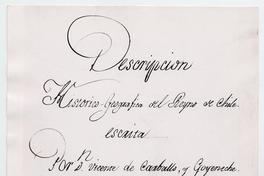 Descripcion
Historico-Geografica del Reyno de Chile.
escrita
Por D.n Vicente de Carballo, y Goyeneche.